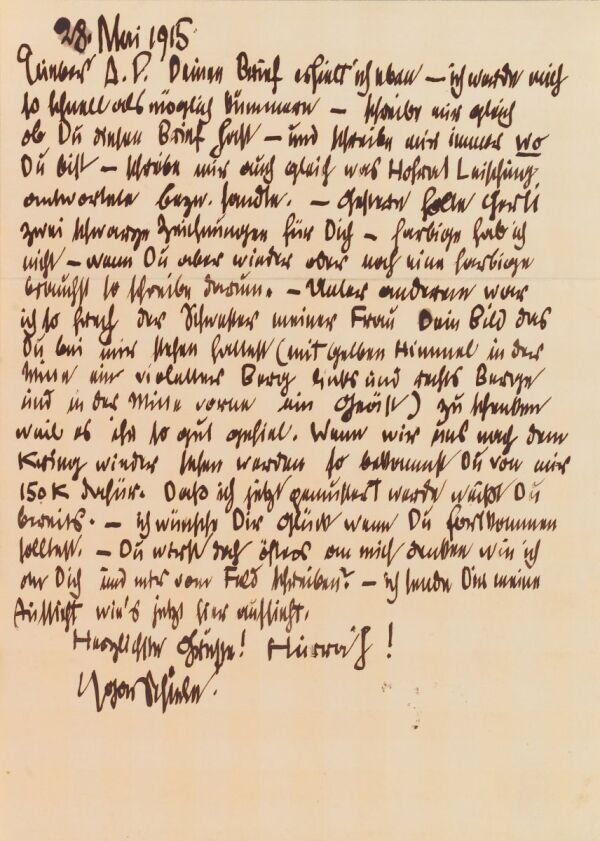 28. Mai 1915
Lieber A. P. Deinen Brief erhielt ich eben – ich werde mich
so schnell als möglich kümmern – schreibe mir gleich
ob Du diesen Brief hast – und schreibe mir immer wo
Du bist – schreibe mir auch gleich was Hofrat Leisching
antwortete bezw. handle. – Gestern holte Gerti
zwei schwarze Zeichnungen für Dich – farbige hab ich
nicht – wenn Du aber wieder oder noch eine farbige
brauchst so schreibe darum. – Unter anderem war
ich so frech der Schwester meiner Frau Dein Bild das
Du bei mir stehen hattest (mit gelben Himmel in der
Mitte ein violetter Berg links und rechts Berge
und in der Mitte vorne ein Geäst) zu schenken
weil es ihr so gut gefiel. Wenn wir uns nach dem
Krieg wieder sehen werden so bekommst Du von mir
150 K dafür. Daß ich jetzt gemustert werde weißt Du
bereits. – ich wünsche Dir Glück wenn Du fortkommen
solltest. – Du wirst doch öfters an mich denken wie ich
an Dich und mir vom Feld schreiben? – ich sende Dir meine
Aussicht wie's jetzt hier aussieht.
Herzlichste Grüsse! Hurrah!
Egon Schiele.